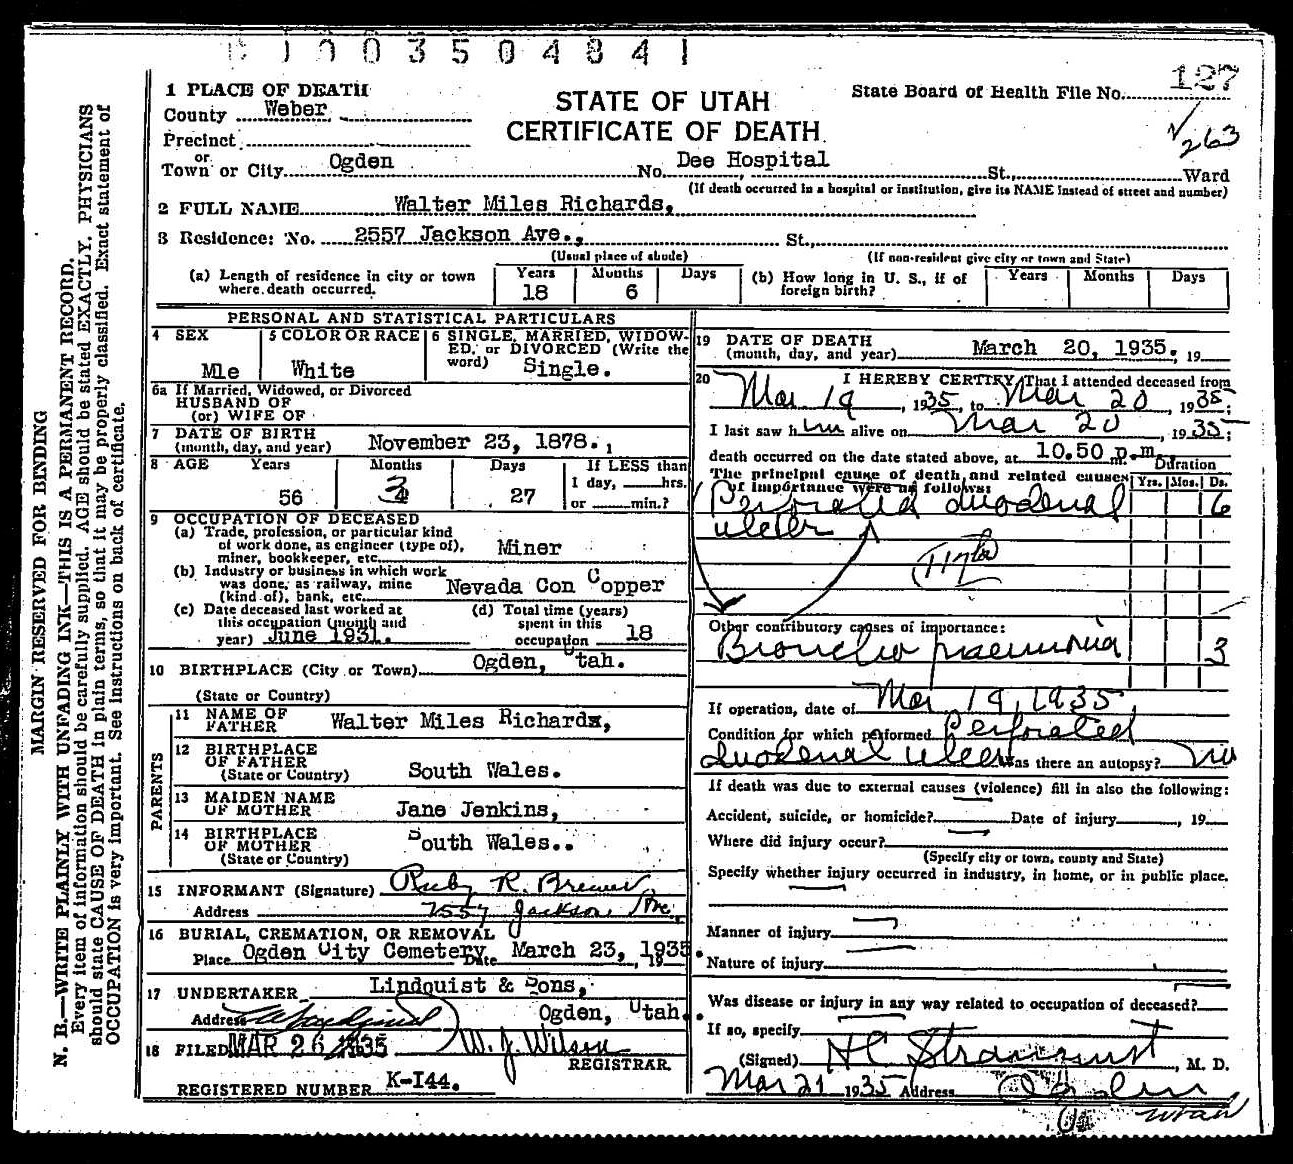 0 0 3 5 0 4 8 4 1
127
263
1 PLACE OF DEATH
County Weber
STATE OF UTAH
CERTIFICATE OF DEATH
State Board of Health File No.
Precinct
or
Town or City Ogden No. Dee Hospital St., Ward
(If death occurred in a hospital or institution, give its NAME instead of street and number)
2 FULL NAME Walter Miles Richards,
3 Residence: No. 2557 Jackson Ave., St.,
(Usual place of abode) (If non-resident give city or town and State)
(a) Length of residence in city or town where death occurred. Years 18 Months 6 Days
(b) How long in U. S., if of foreign birth? Years Months Days
PERSONAL AND STATISTICAL PARTICULARS
4 SEX Mle
5 COLOR OR RACE White
6 SINGLE, MARRIED, WIDOW-
ED, or DIVORCED (Write the
word) Single.
6a If Married, Widowed, or Divorced
HUSBAND OF
(or) WIFE OF
7 DATE OF BIRTH
(month, day, and year) November 23, 1878.
8 AGE Years 56 Months 3 Days 27
If LESS than
1 day, hrs.
or min.?
9 OCCUPATION OF DECEASED
(a) Trade, profession, or particular kind
of work done, as engineer (type of),
miner, bookkeeper, etc. Miner
(b) Industry or business in which work
was done, as railway, mine
(kind of), bank, etc. Nevada Con Copper
(c) Date deceased last worked at
this occupation (month and
year) June 1931.
(d) Total time (years)
spent in this
occupation 18
10 BIRTHPLACE (City or Town) Ogden, Utah.
(State or Country)
PARENTS
11 NAME OF
FATHER Walter Miles Richards,
12 BIRTHPLACE
OF FATHER
(State or Country) South Wales.
13 MAIDEN NAME
OF MOTHER Jane Jenkins,
14 BIRTHPLACE
OF MOTHER
(State or Country) South Wales..
15 INFORMANT (Signature) Ruby R. Brewer
Address 2557 Jackson Ave.
16 BURIAL, CREMATION, OR REMOVAL
Place Ogden City Cemetery Date March 23, 1935. 19
17 UNDERTAKER Lindquist & Sons,
Address Ogden, Utah.
18 FILED MAR 26 1935 W. J. Wilson
REGISTRAR.
REGISTERED NUMBER K-144.
19 DATE OF DEATH
(month, day, and year) March 20, 1935. 19
20 I HEREBY CERTIFY, That I attended deceased from
Mar 19, 1935, to Mar 20, 1935;
I last saw him alive on Mar 20, 1935;
death occurred on the date stated above, at 10.50 p.m.
The principal cause of death and related causes
of importance were as follows:
Duration
Yrs. Mos. Ds.
Perforated duodenal 6
ulcer
Other contributory causes of importance:
Broncho pneumonia 3
If operation, date of Mar 19, 1935
Condition for which performed Perforated
duodenal ulcer Was there an autopsy? no
If death was due to external causes (violence) fill in also the following:
Accident, suicide, or homicide? Date of injury , 19
Where did injury occur?
(Specify city or town, county and State)
Specify whether injury occurred in industry, in home, or in public place.
Manner of injury
Nature of injury
Was disease or injury in any way related to occupation of deceased?
If so, specify
(Signed) , M. D.
Mar 21 1935 Address Ogden
Utah
MARGIN RESERVED FOR BINDING
N. B.—WRITE PLAINLY WITH UNFADING INK—THIS IS A PERMANENT RECORD.
Every item of information should be carefully supplied. AGE should be stated EXACTLY. PHYSICIANS
should state CAUSE OF DEATH in plain terms, so that it may be properly classified. Exact statement of
OCCUPATION is very important. See instructions on back of certificate.